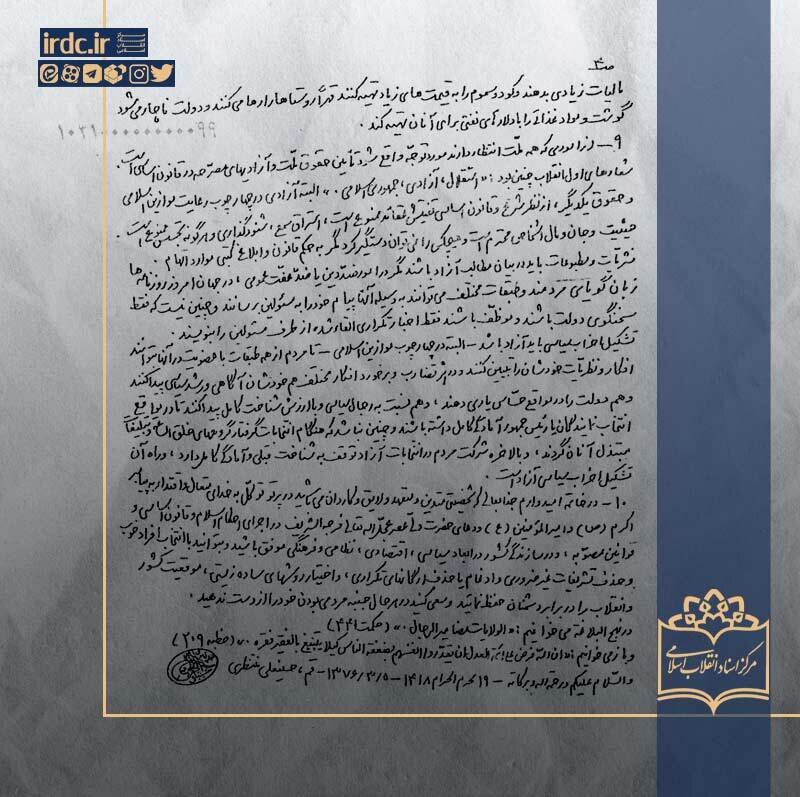 irdc.ir
مرکز اسناد انقلاب اسلامی
ص۴
مالیات زیادی بدهند و کود و سموم را به قیمت های زیاد تهیه کنند قهراً روستاها را رها می کنند و دولت ناچار می شود
گوشت و مواد غذائی را با دلارهای نفتی برای آنان تهیه کند.
۹ - از اموری که همه ملت انتظار دارند مورد توجه واقع شود تأمین حقوق ملت و آزادیهای مصرحه در قانون اساسی است.
شعارهای اول انقلاب چنین بود: «استقلال، آزادی، جمهوری اسلامی.» البته آزادی در چهارچوب رعایت موازین اسلامی
و حقوق یکدیگر، از نظر شرع و قانون اساسی تفتیش عقائد ممنوع است، استراق سمع، شنودگذاری و هرگونه تجسس ممنوع است.
حیثیت و جان و مال اشخاص محترم است و هیچکس را نمی توان دستگیر کرد مگر به حکم قانون و ابلاغ کتبی موارد اتهام.
نشریات و مطبوعات باید در بیان مطالب آزاد باشند مگر در امور ضد دین یا ضد عفت عمومی، در جهان امروز روزنامه ها
زبان گویای مردمند و طبقات مختلف می توانند به وسیله آنها پیام خود را به مسئولین برسانند و چنین نیست که فقط
سخنگوی دولت باشند و موظف باشند فقط اخبار تکراری القاء شده از طرف مسئولین را بنویسند.
تشکیل احزاب سیاسی باید آزاد باشد - البته در چهارچوب موازین اسلامی - تا مردم از همه طبقات با عضویت در آنها بتوانند
افکار و نظریات خودشان را تبیین کنند و در اثر تضارب و برخورد افکار مختلف هم خودشان آگاهی و رشد سیاسی پیدا کنند
و هم دولت را در مواقع حساس یاری دهند، و هم نسبت به رجال سیاسی و با ارزش شناخت کامل پیدا کنند تا در مواقع
انتخاب نمایندگان یا رئیس جمهور آمادگی کامل داشته باشند و چنین نباشد که هنگام انتخابات گرفتار گروههای خلق الساعه و تبلیغات
مبتذل آنان گردند، و بالاخره شرکت مردم در انتخابات آزاد توقف به شناخت قبلی و آمادگی کامل دارد، و راه آن
تشکیل احزاب سیاسی آزاد است.
۱۰ - در خاتمه امیدوارم جنابعالی که شخصیتی متدین و متعهد و لایق و کاردان می باشید در پرتو توکل به خدای متعال و اقتدا به پیامبر
اکرم (ص) و امیرالمؤمنین (ع) و دعای حضرت ولی عصر عجل الله تعالی فرجه الشریف در اجرای احکام اسلام و قانون اساسی و
قوانین مصوبه، و در سازندگی کشور در ابعاد سیاسی، اقتصادی، نظامی و فرهنگی موفق باشید و بتوانید با انتخاب افراد خوب
و حذف تشریفات غیر ضروری و ادغام یا حذف ارگانهای تکراری، و اختیار روشهای ساده زیستی، موقعیت کشور
و انقلاب را در برابر دشمنان حفظ نمائید و سعی کنید در هر حال جنبه مردمی بودن خود را از دست ندهید.
در نهج البلاغه می خوانیم: «الولایات مضامیر الرجال.» (حکمت ۴۴۱)
و باز می خوانیم: «ان الله فرض علی ائمة العدل ان یقدروا انفسهم بضعفة الناس کیلا یتبیغ بالفقیر فقره.» (خطبه ۲۰۹)
والسلام علیکم و رحمة الله و برکاته - ۱۹ محرم الحرام ۱۴۱۸ - ۱۳۷۶/۳/۵ - قم، حسینعلی منتظری
مرکز اسناد انقلاب اسلامی